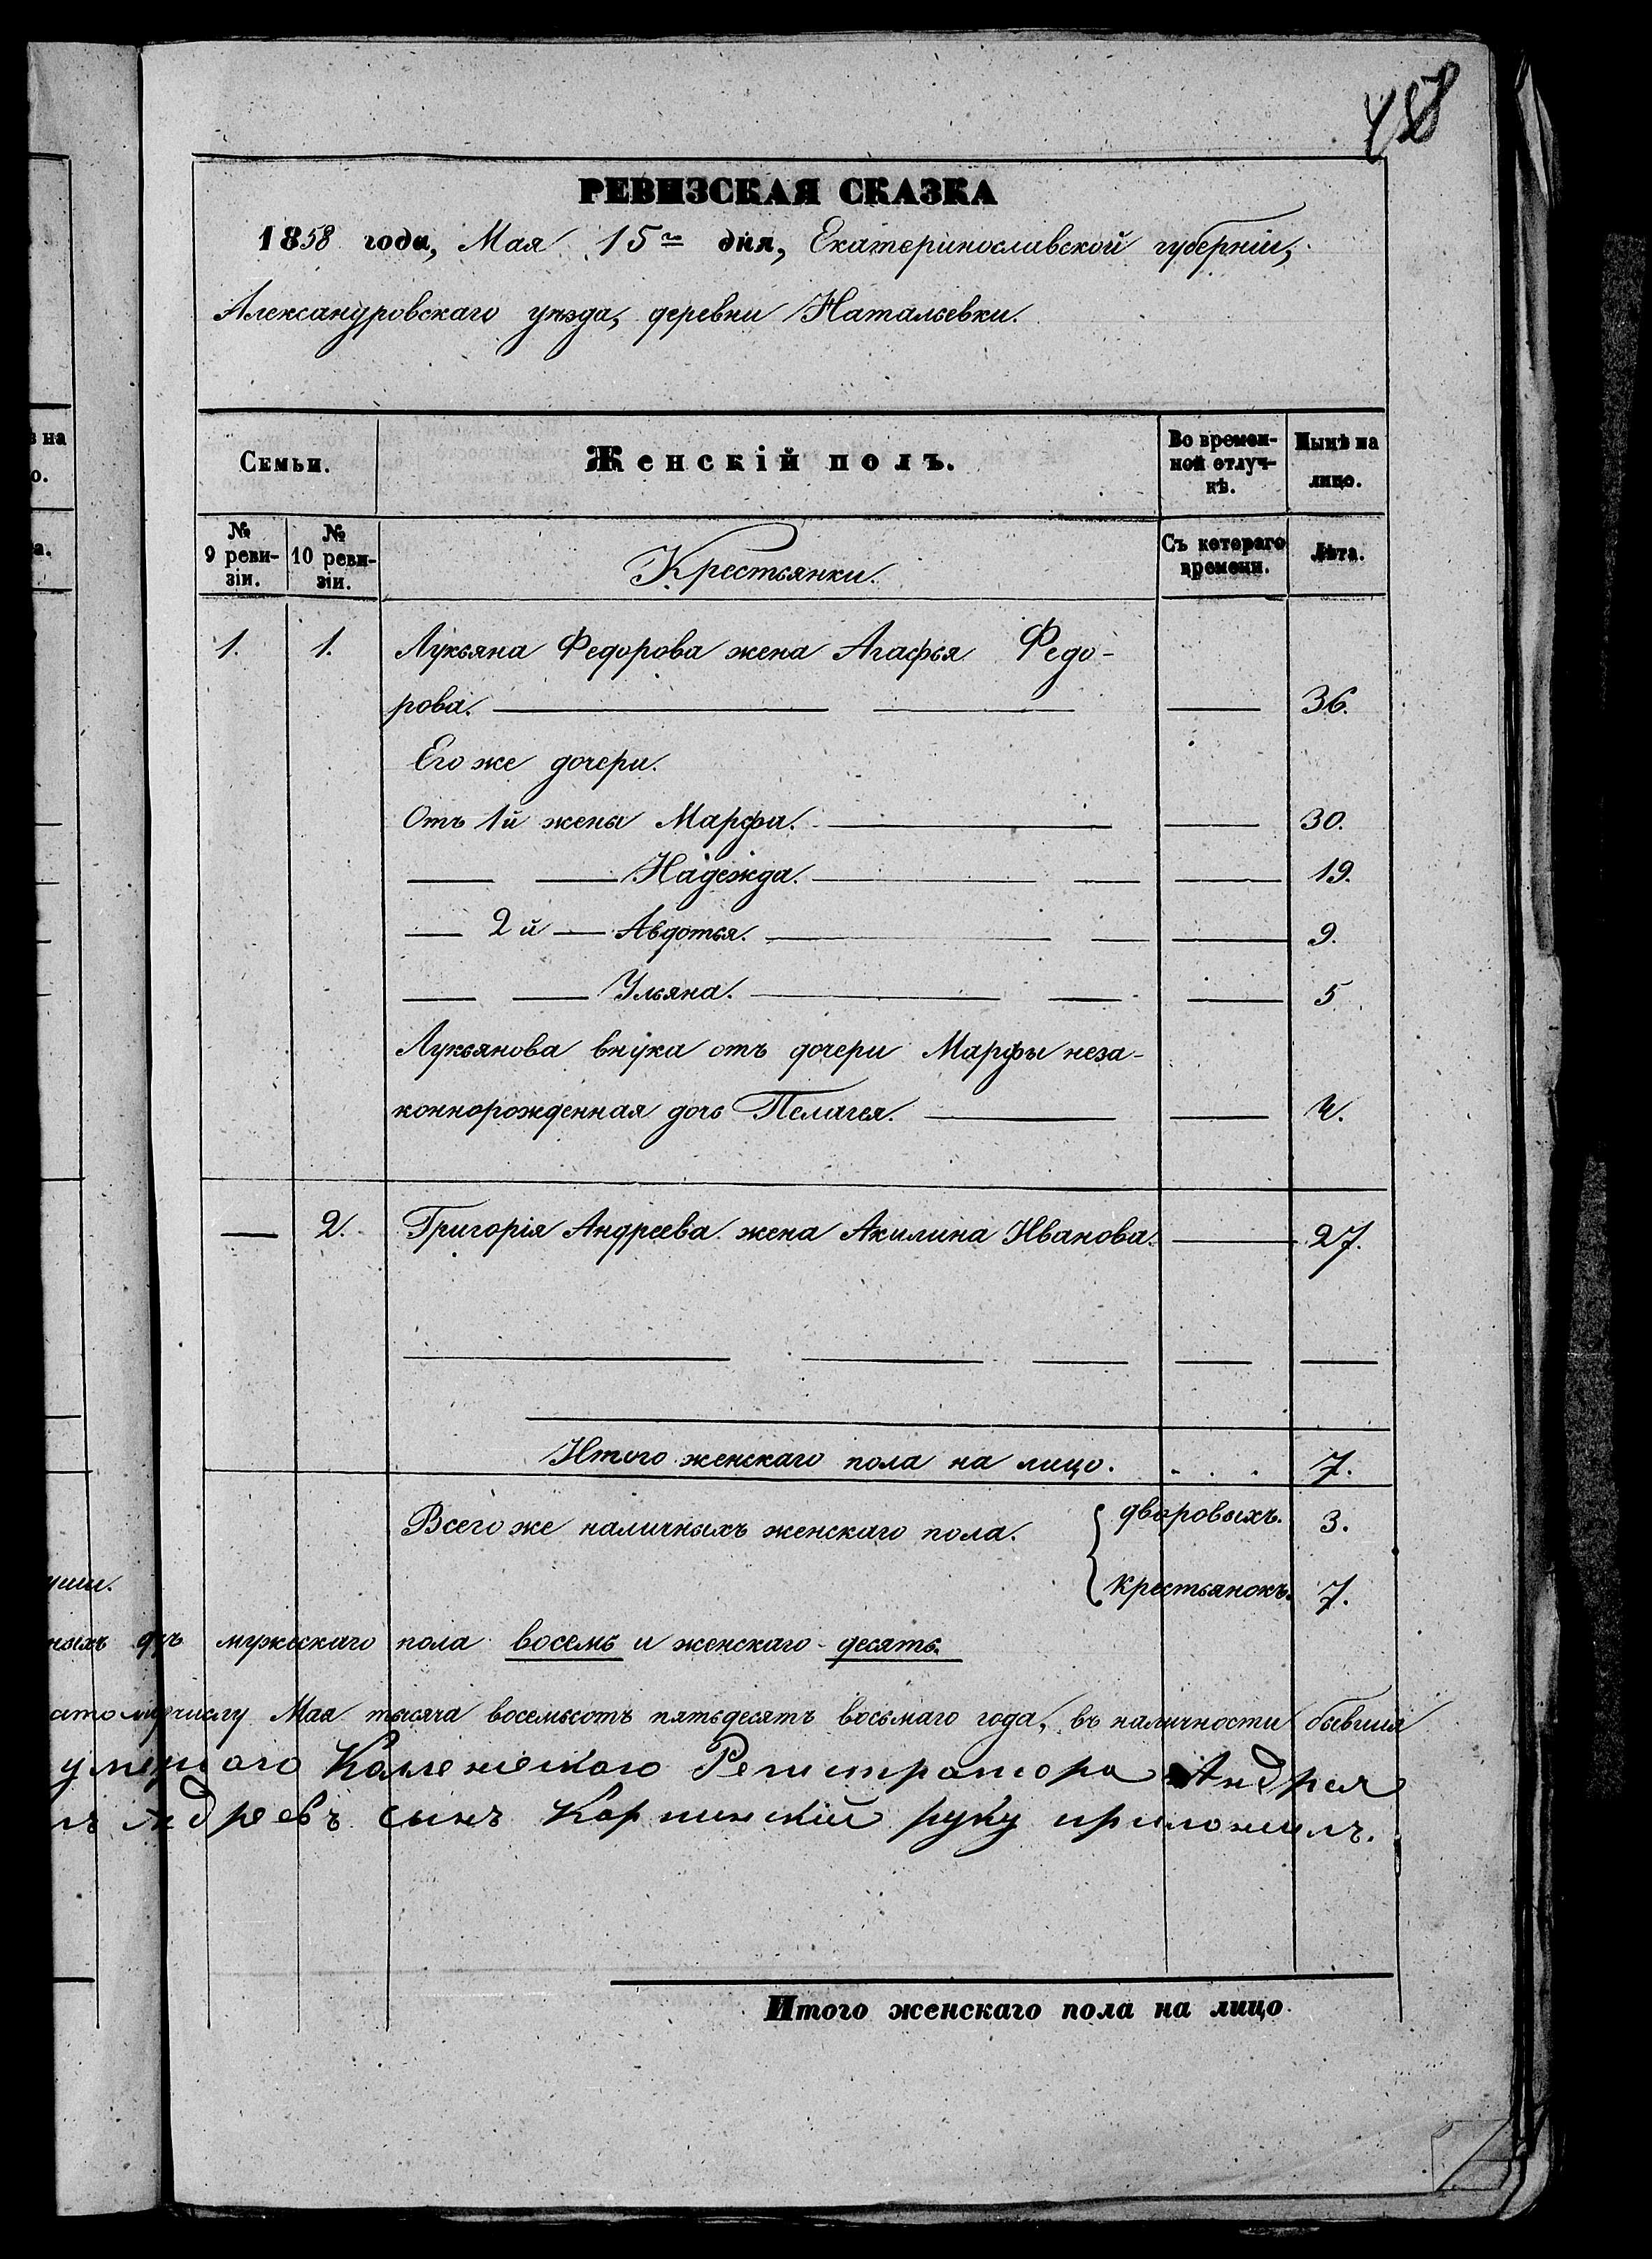 458
РЕВИЗСКАЯ СКАЗКА
1858 года, Мая 15го дня, Екатеринославской губерніи,
Александровскаго уѣзда, деревни Натальевки.
ѣ на
о.
Семьи.
Женскій полъ.
Во времен-
ной отлуч-
кѣ.
Нынѣ на
лицо.
а.
№
9 реви-
зіи.
№
10 реви-
зіи.
Крестьянки.
Съ котораго
времени.
Лѣта.
1. 1. Лукьяна Федорова жена Агафья Федо-
рова. 36.
Его же дочери.
Отъ 1й жены Марфа. 30.
Надежда. 19.
2й Авдотья. 9.
Ульяна. 5
Лукьянова внука отъ дочери Марфы неза-
коннорожденная дочь Пелагея. 4.
2. Григорія Андреева жена Акилина Иванова. 27.
Итого женскаго пола на лицо. . . . 7.
Всего же наличныхъ женскаго пола. { дворовыхъ. 3.
крестьянокъ. 7.
мужескаго пола восемь и женскаго - десять.
числу Мая тысяча восемьсотъ пятьдесятъ восьмаго года, въ наличности бывшия
умершаго Коллежскаго Регистратора Андрея
Андреевъ сынъ Карпинскій руку приложилъ.
Итого женскаго пола на лицо